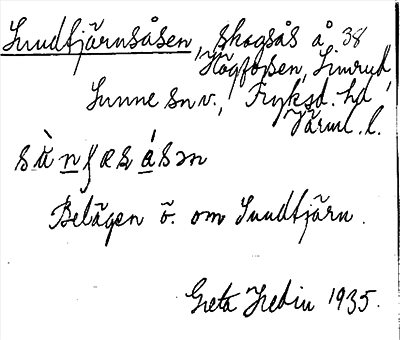 Sundtjärnsåsen, skogsås å 38
Högfossen, Simrud,
Sunne snv., Fryksd. hd,
Värml. l.
sùnʃæsásən
Belägen ö. om Sundtjärn.
Greta Hedin 1935.